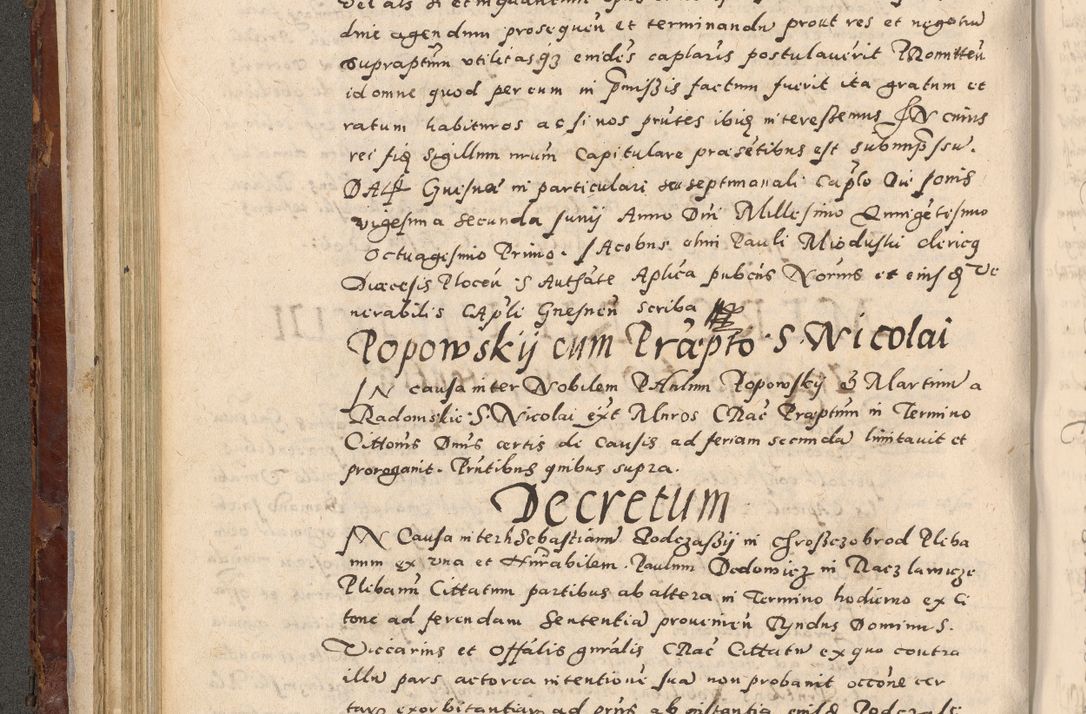 dne agendum prosequen et terminandu prout res et negotiu
supraptum utilitasq3 eiusde caplaris postulaverit Promitten
id omne quod per eum in pmissis factum fuerit ita gratum et
ratum habituros ac si nos pntes ibiq interessemus IN cuius
rei fidē Sigillum nrum Capitulare præsētibus est subimpssu.
DAT Gnesnæ in particulari seu septimanali Caplo Die Jovis
vigesima secunda Junij Anno Dni Millesimo Quingētesimo
Octuagesimo Primo. JAcobus olim Pauli Mioduski clericq
Diæcesis Plocen S Authāte Aplica pubcus Norius et eiusdē Ve
nerabilis CApli Gnesnen scriba
Popowskij cum Præpto S. Nicolai
IN causa inter Nobilem PAulum Popowsky et Martinū a
Radomskie S. Nicolai ext Muros CRac Præptum in Termino
Cittonis Dnus certis de causis ad feriam secundā limitavit et
prorogavit. Pntibus quibus supra.
Decretum
IN Causa inter h Sebastianū Podczassij in Chrosczobrod Pleba
num ex una et Hnrabilem. Paulum Dedowicz in Racz lawicze
Plebanū Cittatum partibus ab altera in Termino hodierno ex Ci
tone ad ferendam Sententiā provenien Pyndus Dominus S.
Viccarius et Offālis gnralis CRac Cittatū ex quo contra
illū pars actorea intentionē suā non probavit occōne cer
tarū exorbitantiarū ad pntis ab instantia eiusdē Podczaski